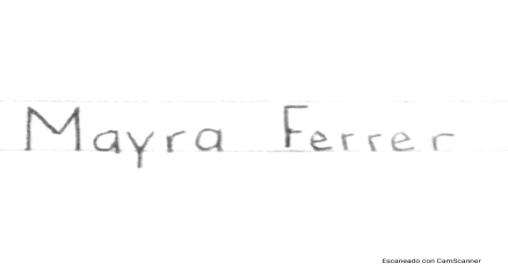 Mayra Ferrer
Escaneado con CamScanner